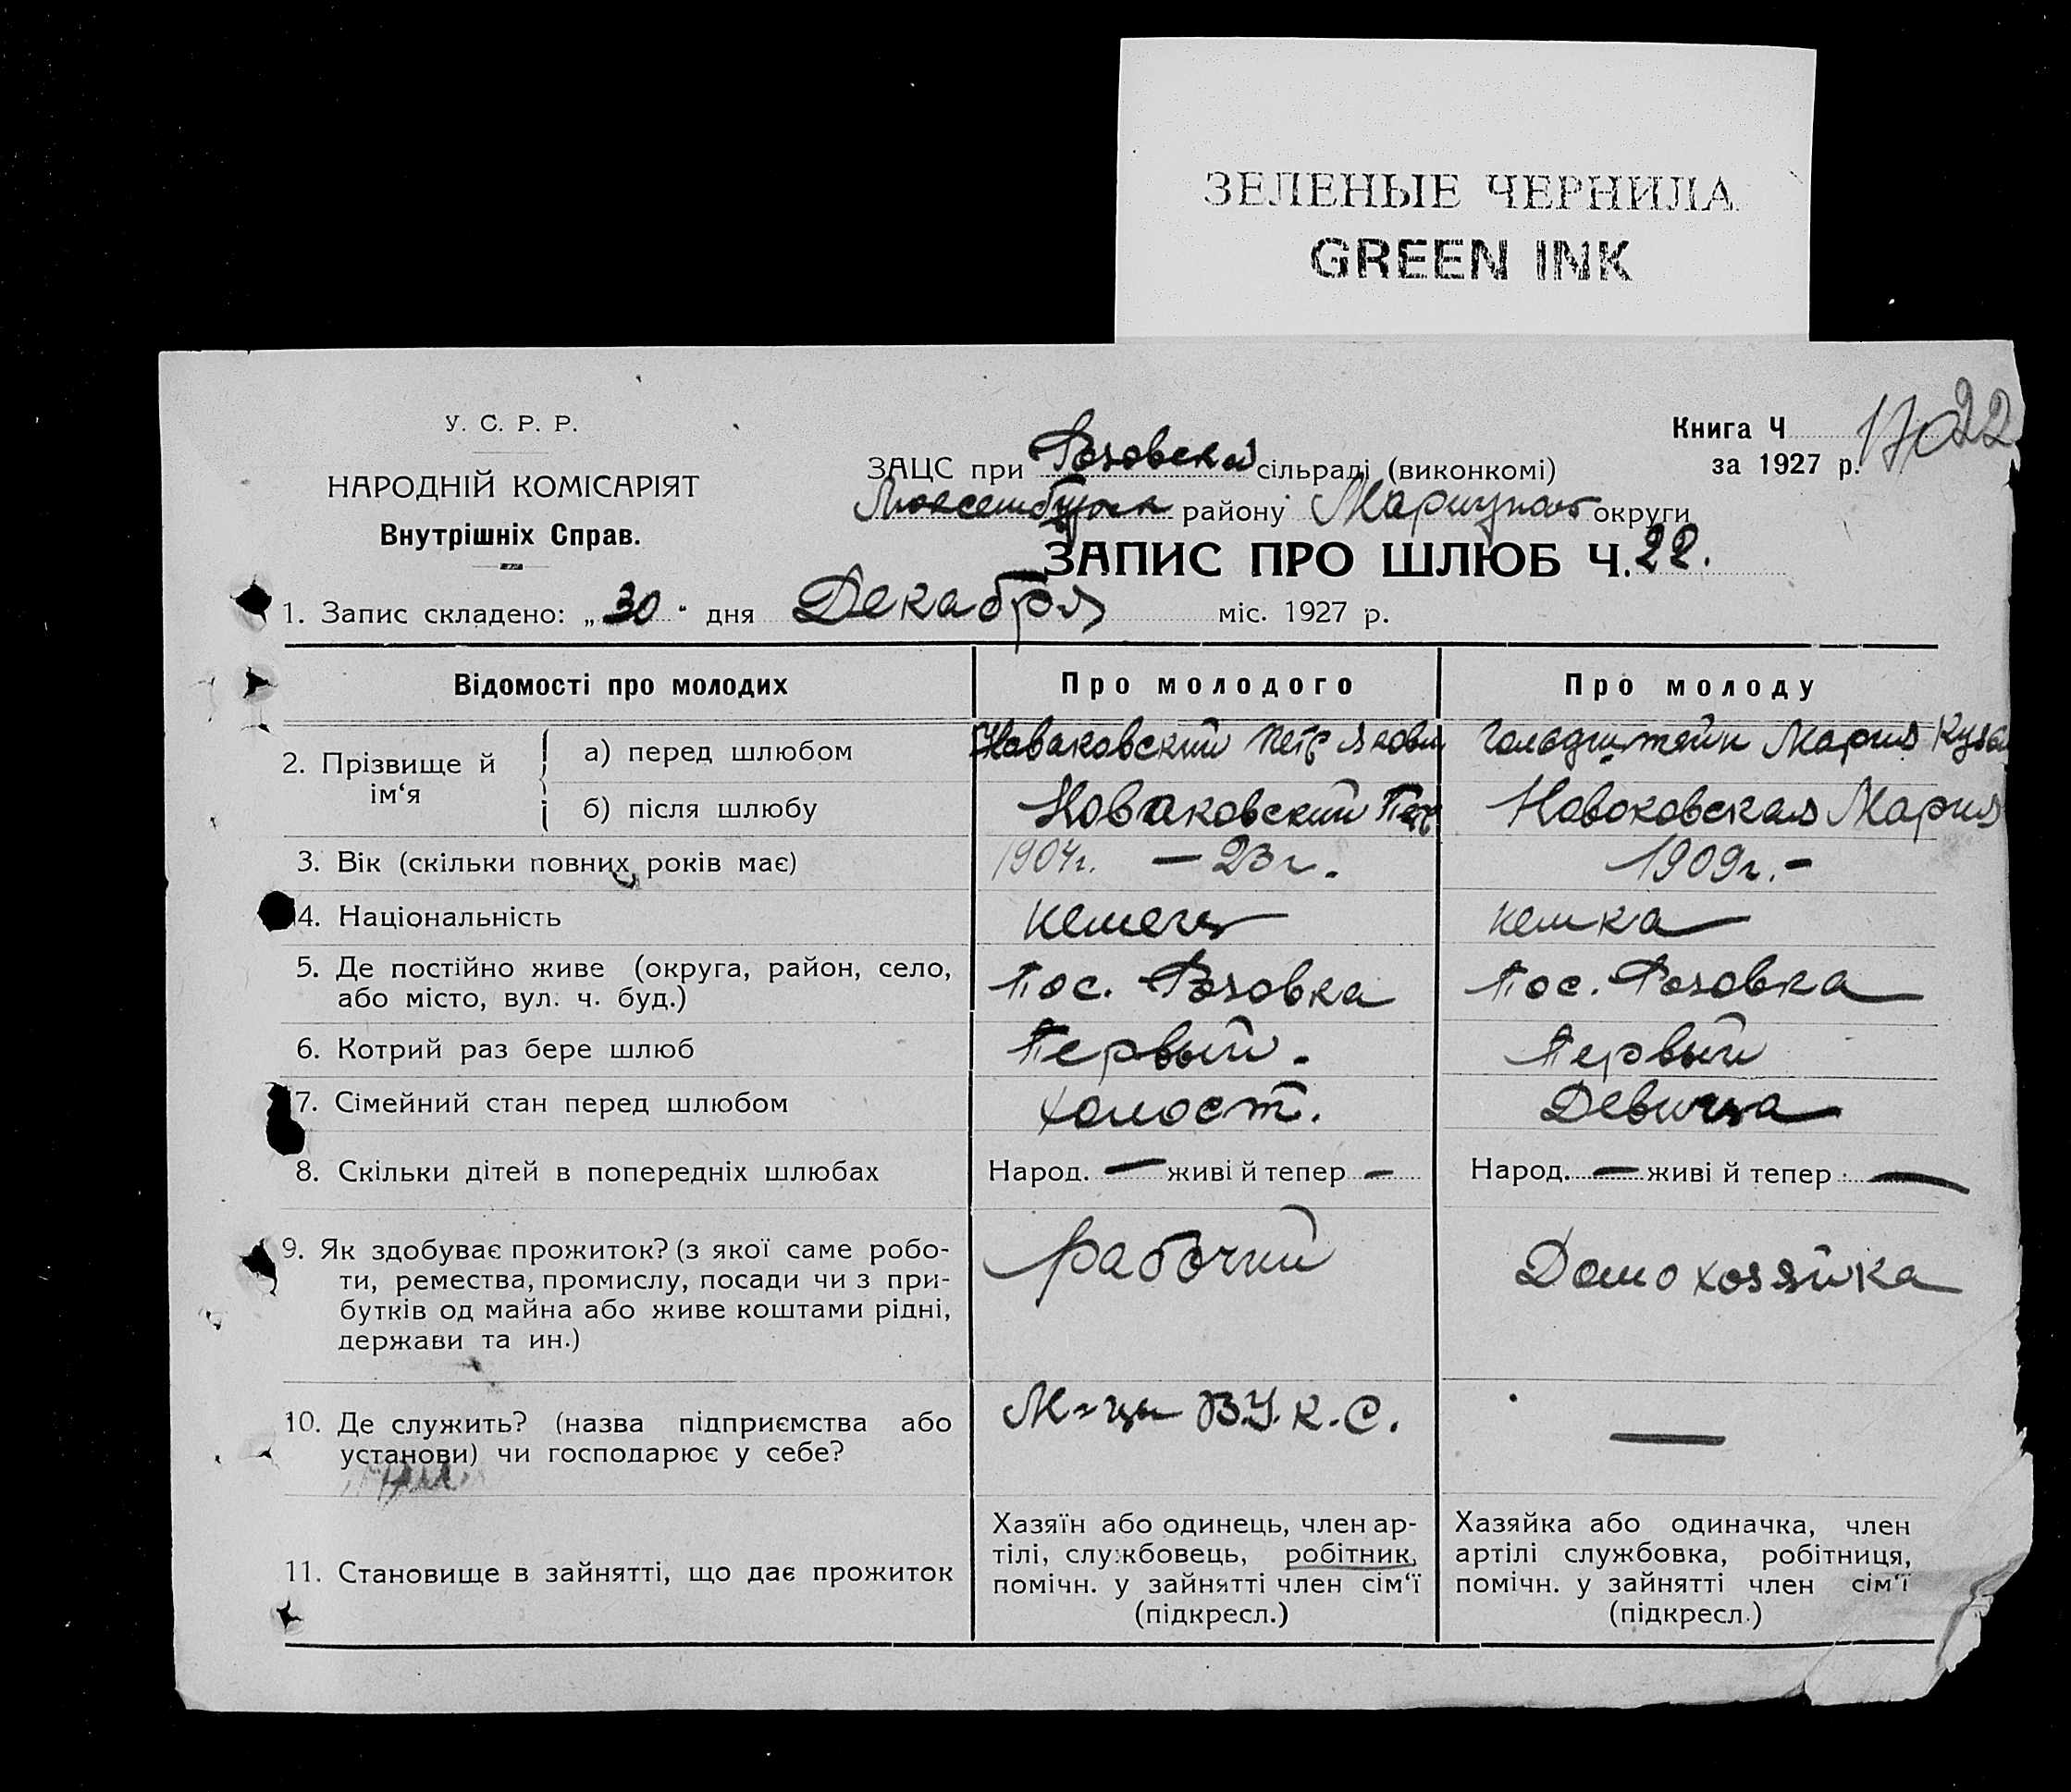 ЗЕЛЕНЫЕ ЧЕРНИЛА
GREEN INK
У. С. Р. Р.
НАРОДНІЙ КОМІСАРІЯТ
Внутрішніх Справ.
Книга Ч
за 1927 р.
22
ЗАЦС при Розовской сільраді (виконкомі)
району Мариупол округи
ЗАПИС ПРО ШЛЮБ Ч. 22.
1. Запис складено: „30" дня Декабря міс. 1927 р.
Відомості про молодих Про молодого Про молоду
2. Прізвище й ім‘я
а) перед шлюбом Новаковский Петр Яковл Гольдштейн Мария Кузьм
б) після шлюбу Новаковский Петр Новоковская Мария
3. Вік (скільки повних років має) 1904г. — 23 г. 1909г. —
4. Національність немец немка
5. Де постійно живе (округа, район, село,
або місто, вул. ч. буд.) Пос. Розовка Пос. Розовка
6. Котрий раз бере шлюб Первый. Первый
7. Сімейний стан перед шлюбом холост. Девица
8. Скільки дітей в попередніх шлюбах Народ. — живі й тепер — Народ. — живі й тепер —
9. Як здобуває прожиток? (з якої саме робо-
ти, ремества, промислу, посади чи з при-
бутків од майна або живе коштами рідні,
держави та ин.)
рабочий Домохозяйка
10. Де служить? (назва підприємства або
установи) чи господарює у себе?
М-ца В.У.К.С. —
11. Становище в зайнятті, що дає прожиток
Хазяїн або одинець, член ар-
тілі, службовець, робітник,
помічн. у зайнятті член сім‘ї
(підкресл.)
Хазяйка або одиначка, член
артілі службовка, робітниця,
помічн. у зайнятті член сім‘ї
(підкресл.)